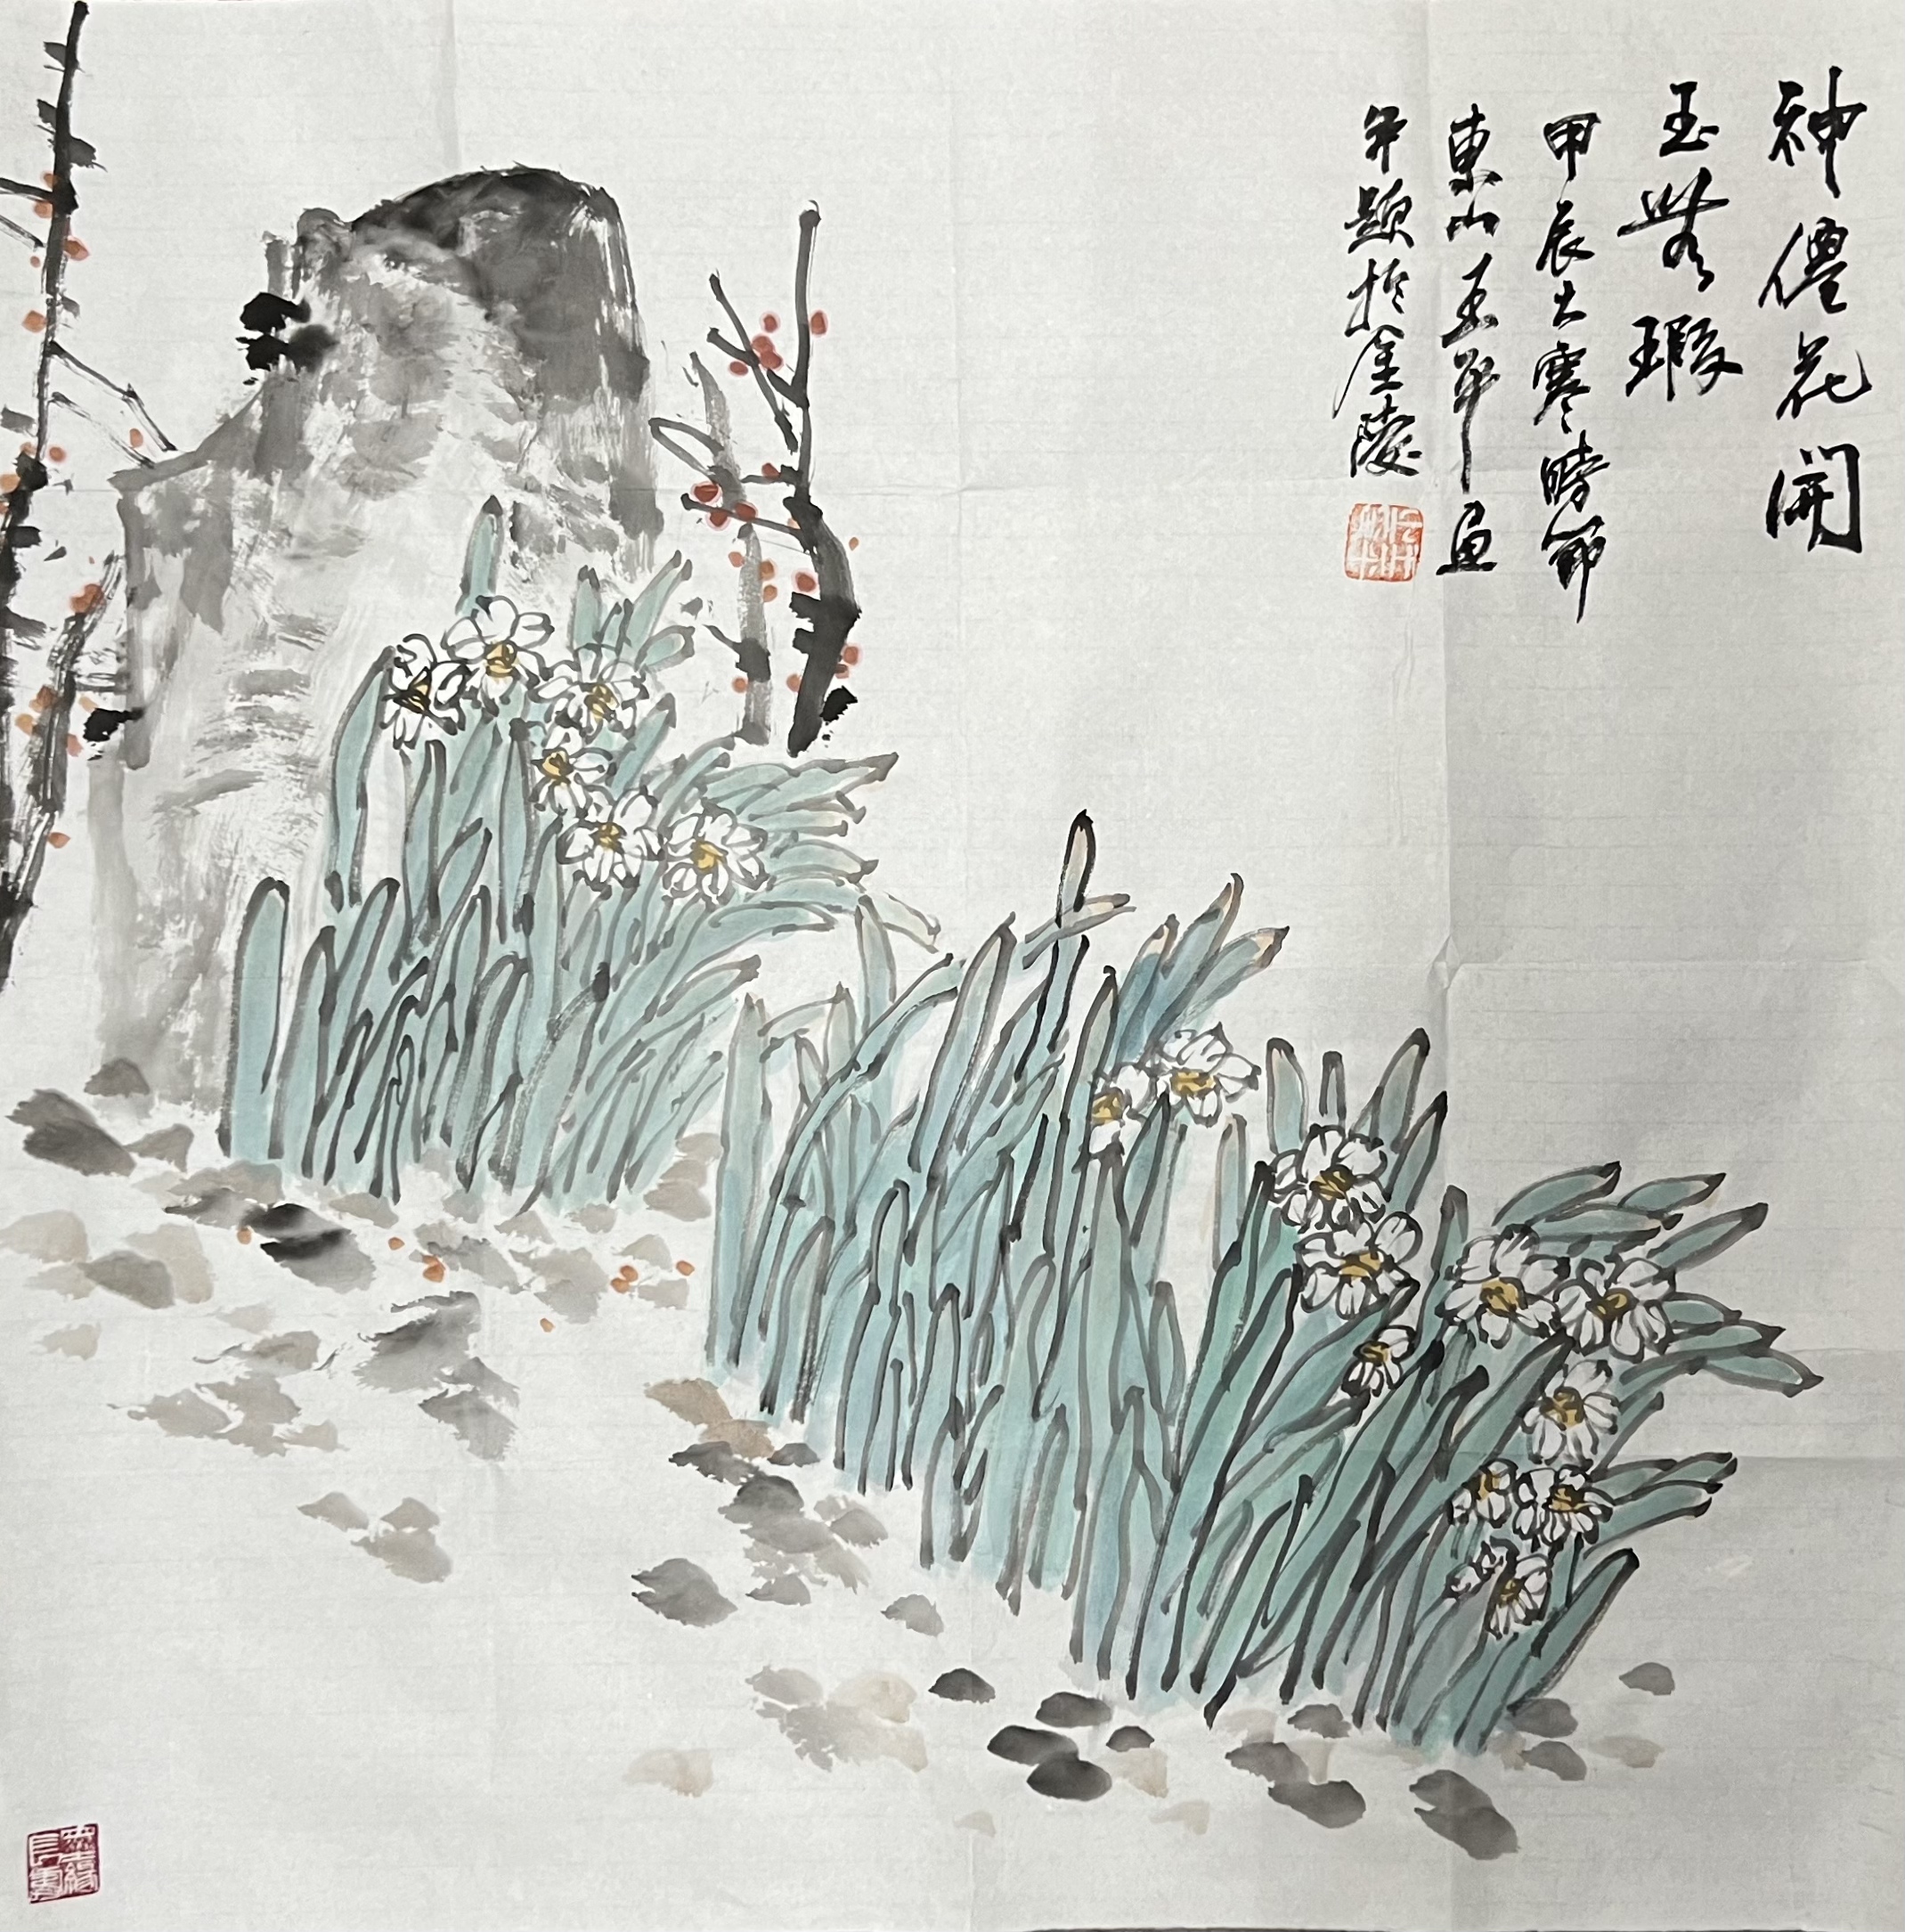 神僊花開
玉無瑕
甲辰大寒時節
東山玉華画
年題於金陵